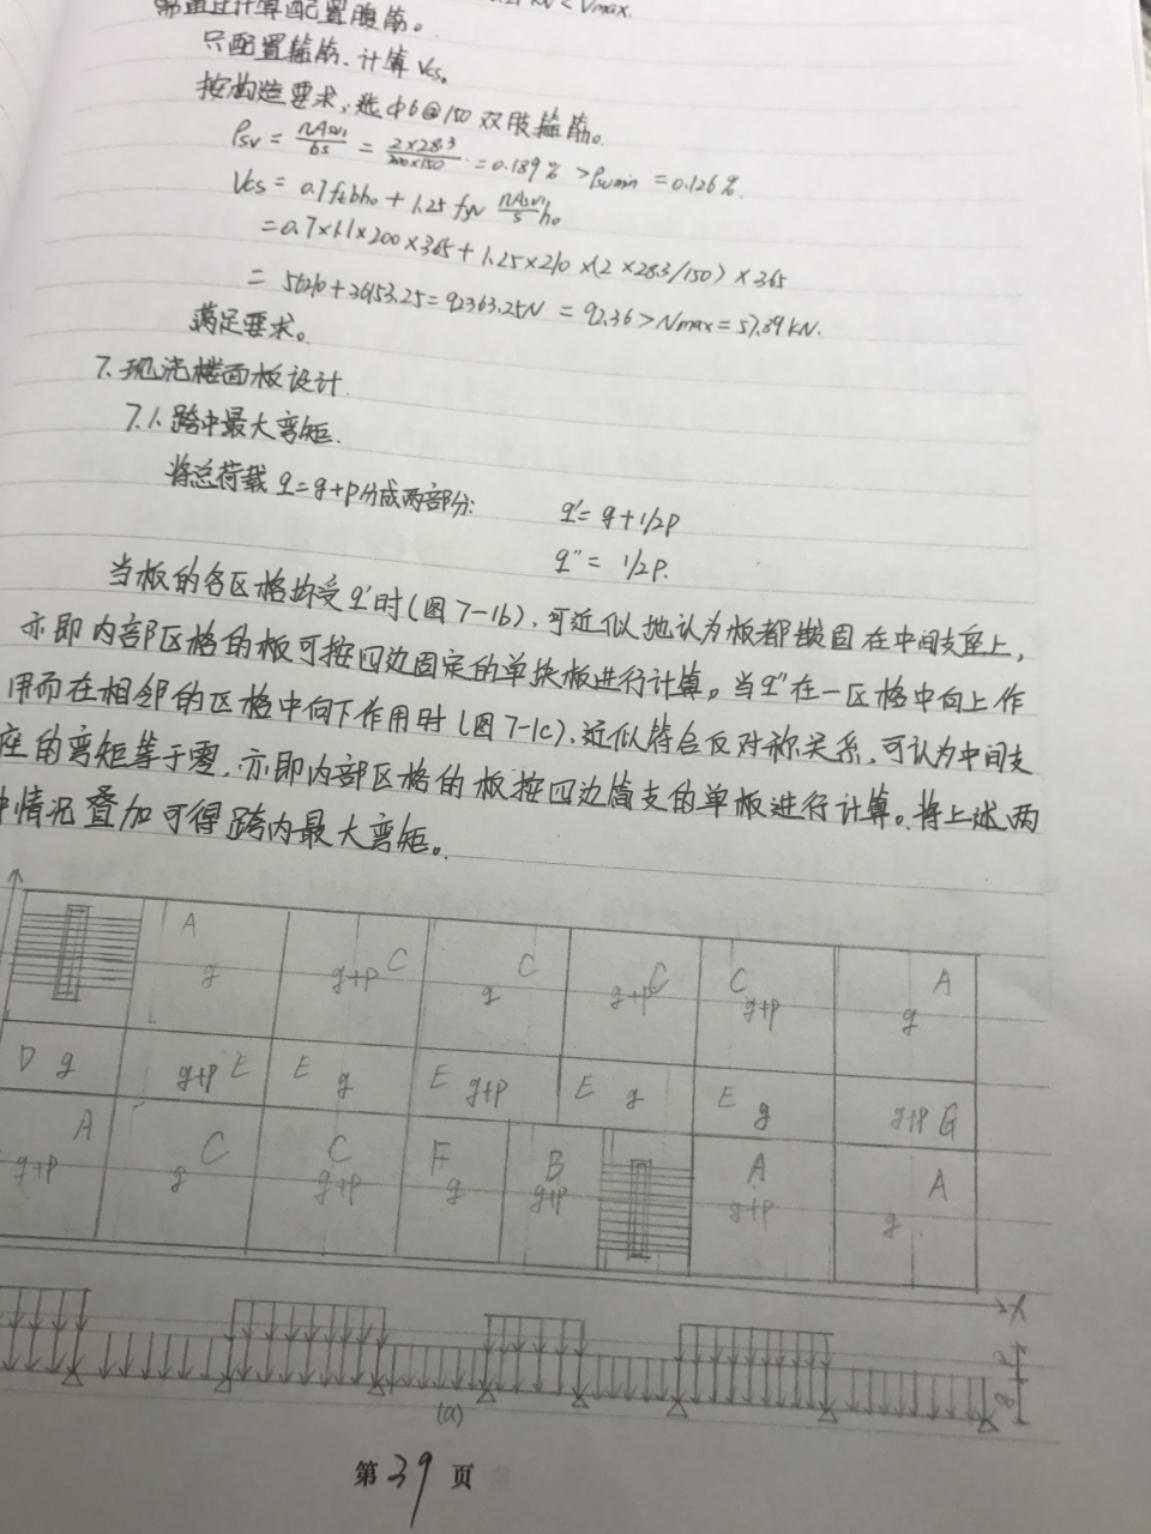 需通过计算配置腹筋。
只配置箍筋、计算 Vcs。
按构造要求，选 Φ6@150 双肢箍筋。
ρsv = nAsv1/bs = 2×28.3/200×150 = 0.189% > ρsvmin = 0.126%.
Vcs = 0.7ftbh0 + 1.25 fyv nAsv1/s h0
= 0.7×1.1×200×365 + 1.25×210×(2×28.3/150)×365
= 56210+36153.25 = 92363.25N = 92.36 > Nmax = 57.89 KN.
满足要求。
7. 现浇楼面板设计
7.1. 跨中最大弯矩.
将总荷载 q=g+p分成两部分:
q'= g+1/2P
q''= 1/2P.
当板的各区格均受q'时(图7-1b)，可近似地认为板都嵌固在中间支座上，
亦即内部区格的板可按四边固定的单块板进行计算。当q''在一区格中向上作
用而在相邻的区格中向下作用时(图7-1c)，近似符合反对称关系，可认为中间支
座的弯矩等于零，亦即内部区格的板按四边简支的单板进行计算。将上述两
种情况叠加可得跨内最大弯矩。
A C C C C A
g g+p g g+p g+p g
D g g+p E E g E g+p E g E g g+p G
A C C F B A A
g+p g g+p g g+p g+p g
X
(a)
第39页